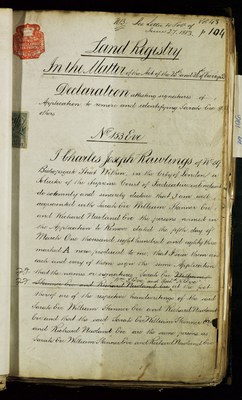 See Letter to
June 27. 1883. p 104
Land Registry
In the Matter of the Act of the
Declaration attesting signatures of
Application to remove and identifying Sarah Eve &
others
No. 153 Eve
I Charles Joseph Rawlings of No.
Bishopsgate Street Within, in the City of London a
Solicitor of the Supreme Court of Judicature
do solemnly and sincerely declare that I am well
acquainted with Sarah Eve William Thomas Eve
and Richard Newland Eve the persons named in
the Application to Remove dated the fifth day of
March One thousand eight hundred and eighty three
marked A now produced to me, that I saw them
each and every of them sign the same Application
that the names or signatures Sarah Eve
and Richard Newland Eve at the foot
thereof are of the respective handwritings of the said
Sarah Eve William Thomas Eve and Richard Newland
Eve and that the said Sarah Eve William Thomas Eve
and Richard Newland Eve are the same persons as
Sarah Eve William Thomas Eve and Richard Newland Eve